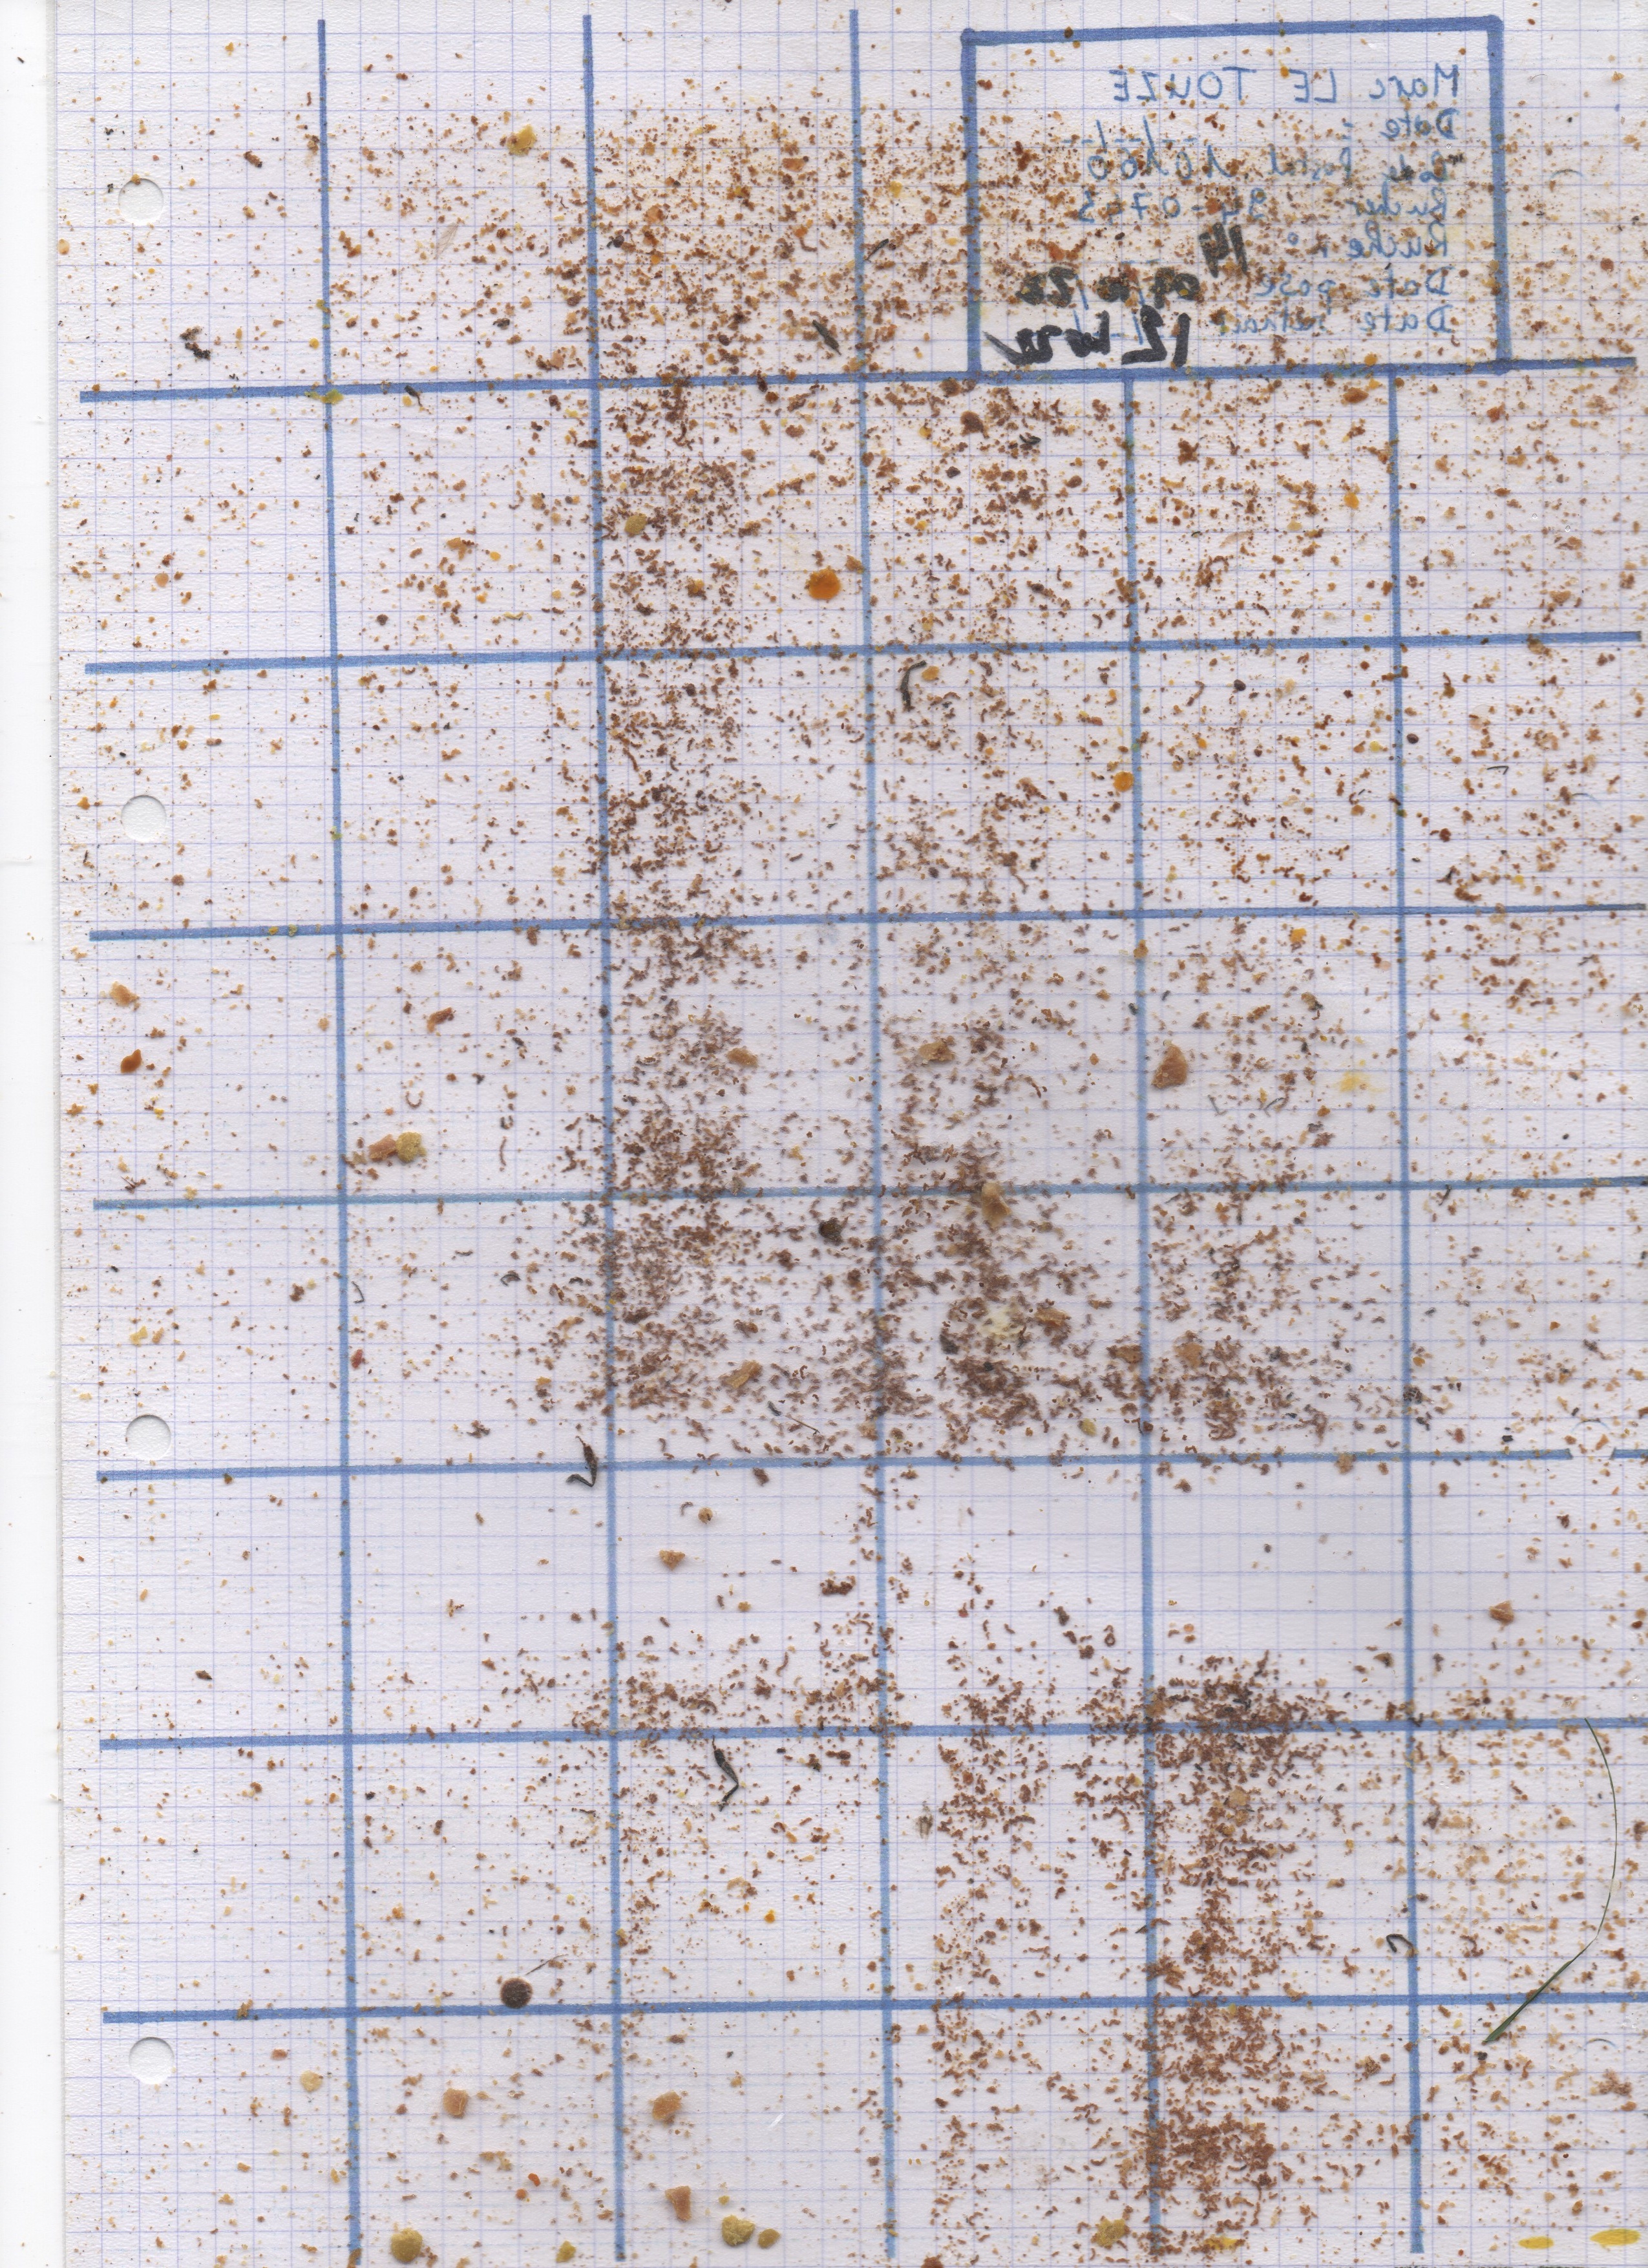 Marc LE TOUZE
Date : _ _/_ _/_ _
Code Postal 10400
Rucher 94-0745
Ruche n° 14
Date pose
Date retrait 12